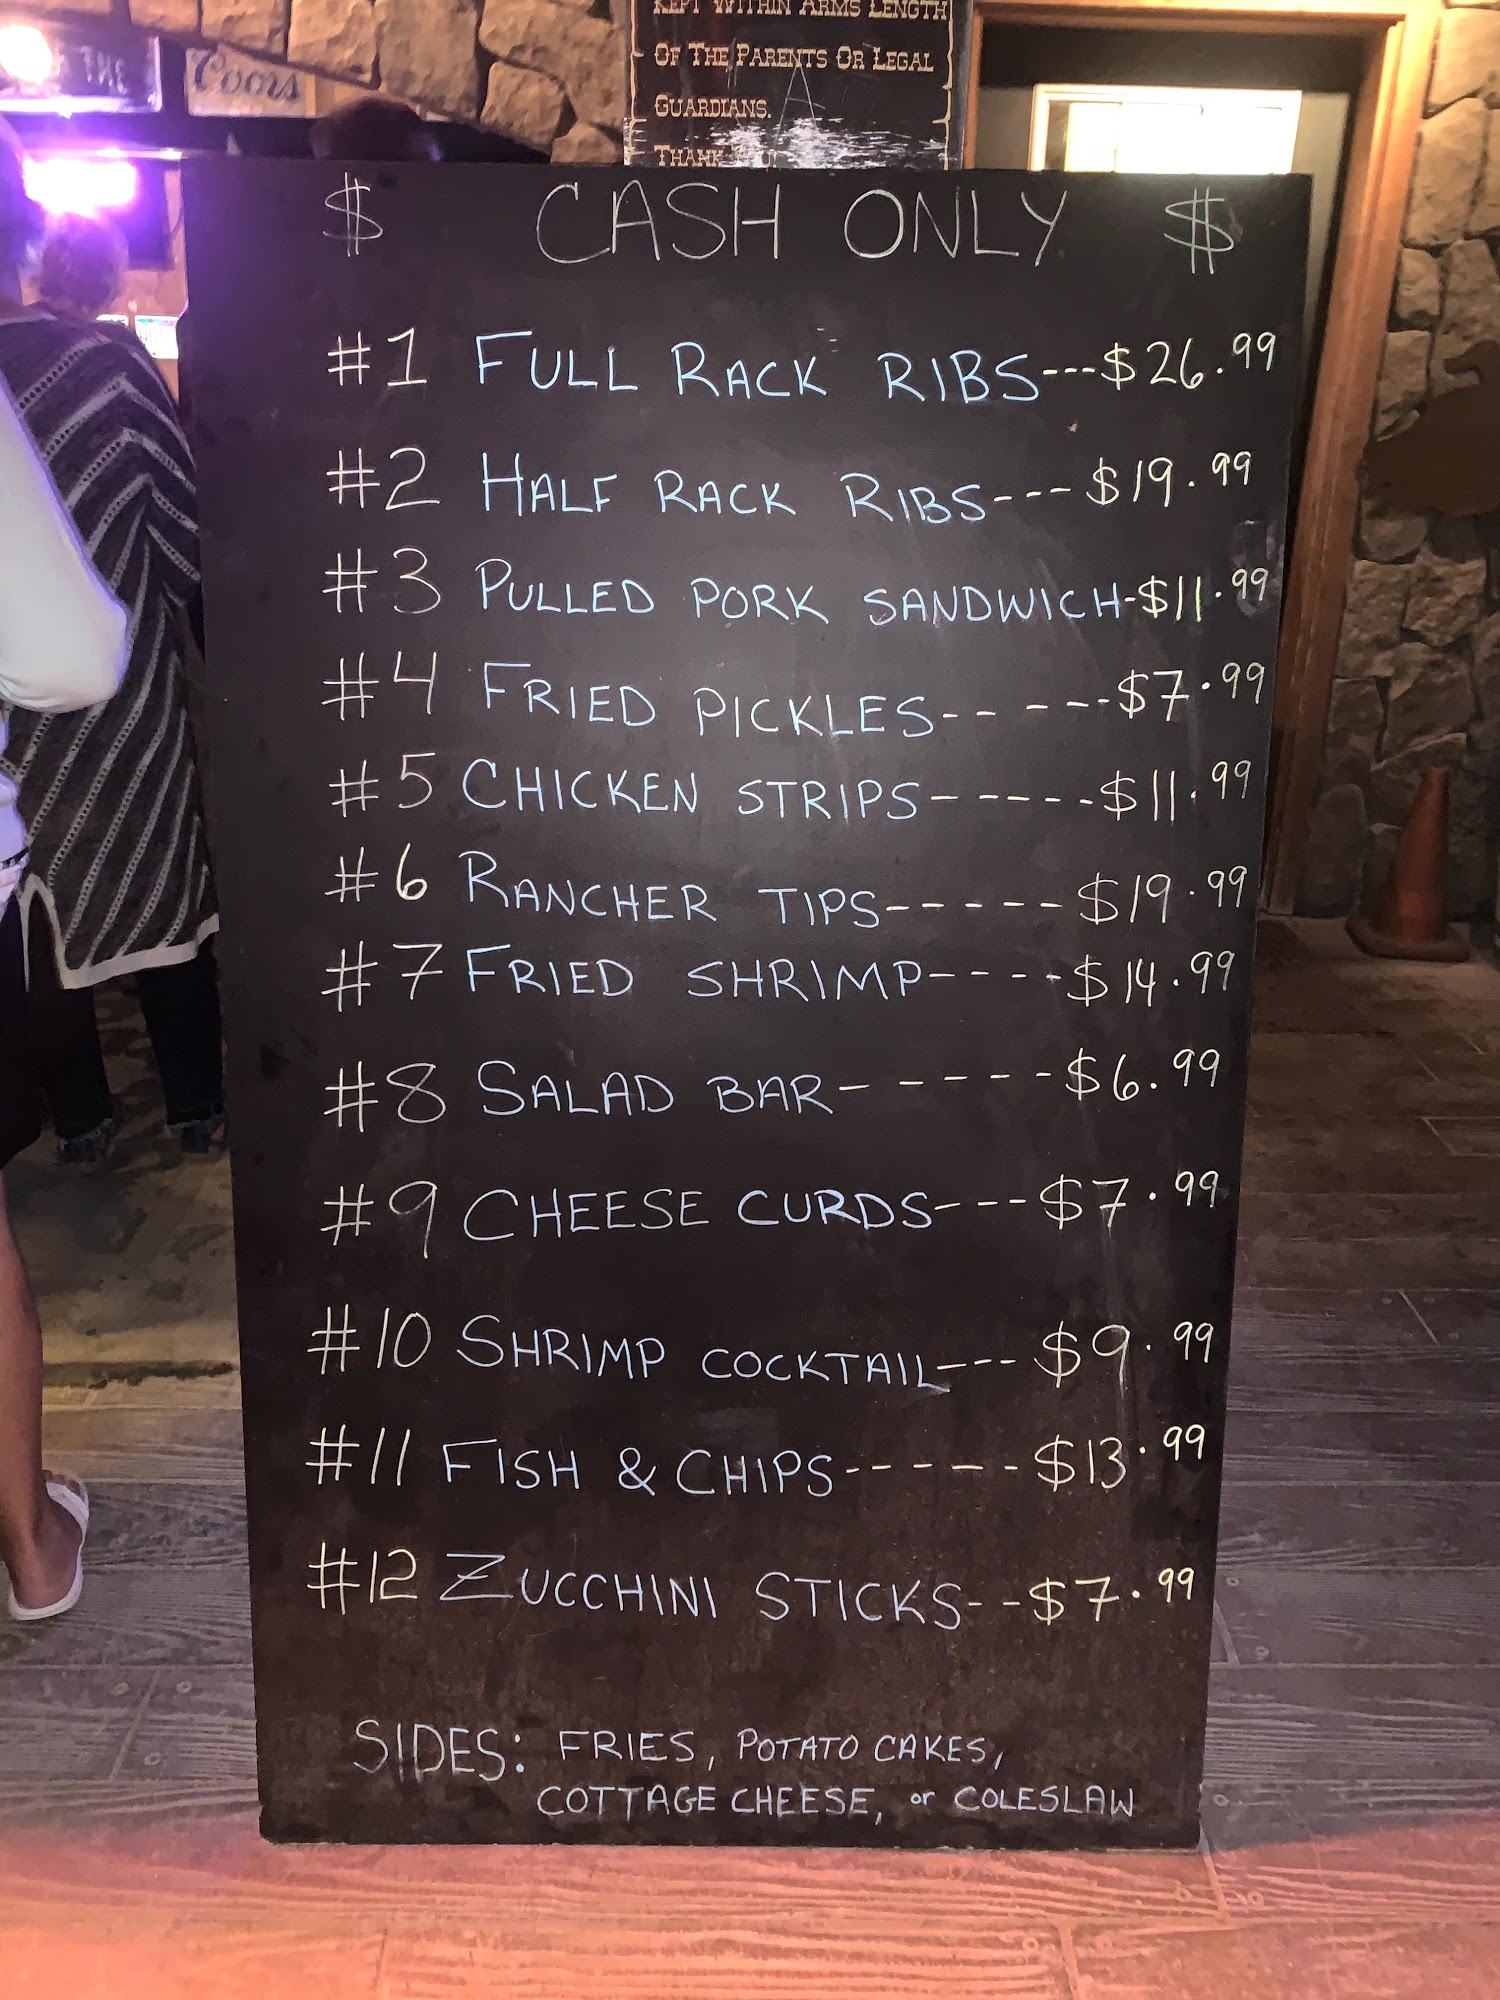 THE
Coors
KEPT WITHIN ARMS LENGTH
OF THE PARENTS OR LEGAL
GUARDIANS.
THANK YOU!
$ CASH ONLY $
#1 FULL RACK RIBS---$26.99
#2 HALF RACK RIBS---$19.99
#3 PULLED PORK SANDWICH-$11.99
#4 FRIED PICKLES------$7.99
#5 CHICKEN STRIPS------$11.99
#6 RANCHER TIPS------$19.99
#7 FRIED SHRIMP-----$14.99
#8 SALAD BAR------$6.99
#9 CHEESE CURDS---$7.99
#10 SHRIMP COCKTAIL---$9.99
#11 FISH & CHIPS------$13.99
#12 ZUCCHINI STICKS--$7.99
SIDES: FRIES, POTATO CAKES,
COTTAGE CHEESE, or COLESLAW